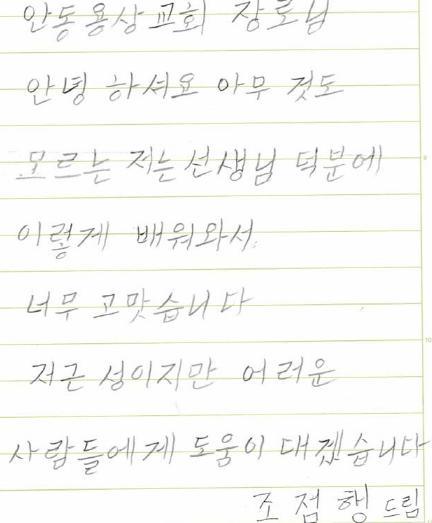 안동용상교회 장로님
안녕 하셔요 아무 것도
모르는 저는선생님 덕분에
이렇게 배워와서
너무 고맛습니다
저근 성이지만 어려운
사람들에게 도움이 대겠습니다
조점행 드림